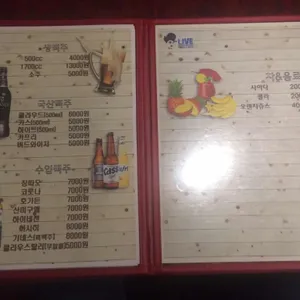 생맥주
500cc 4000원
1700cc 13000원
소주 5000원
국산맥주
클라우드(500ml) 6000원
카스(500ml) 5000원
하이트(500ml) 5000원
카프리 5000원
버드와이저 5000원
수입맥주
칭따오 7000원
코로나 7000원
호가든 7000원
산미구엘 7000원
하이네켄 7000원
아사히 7000원
기네스(흑맥주) 8000원
LIVE
사이다
콜라
오렌지쥬스